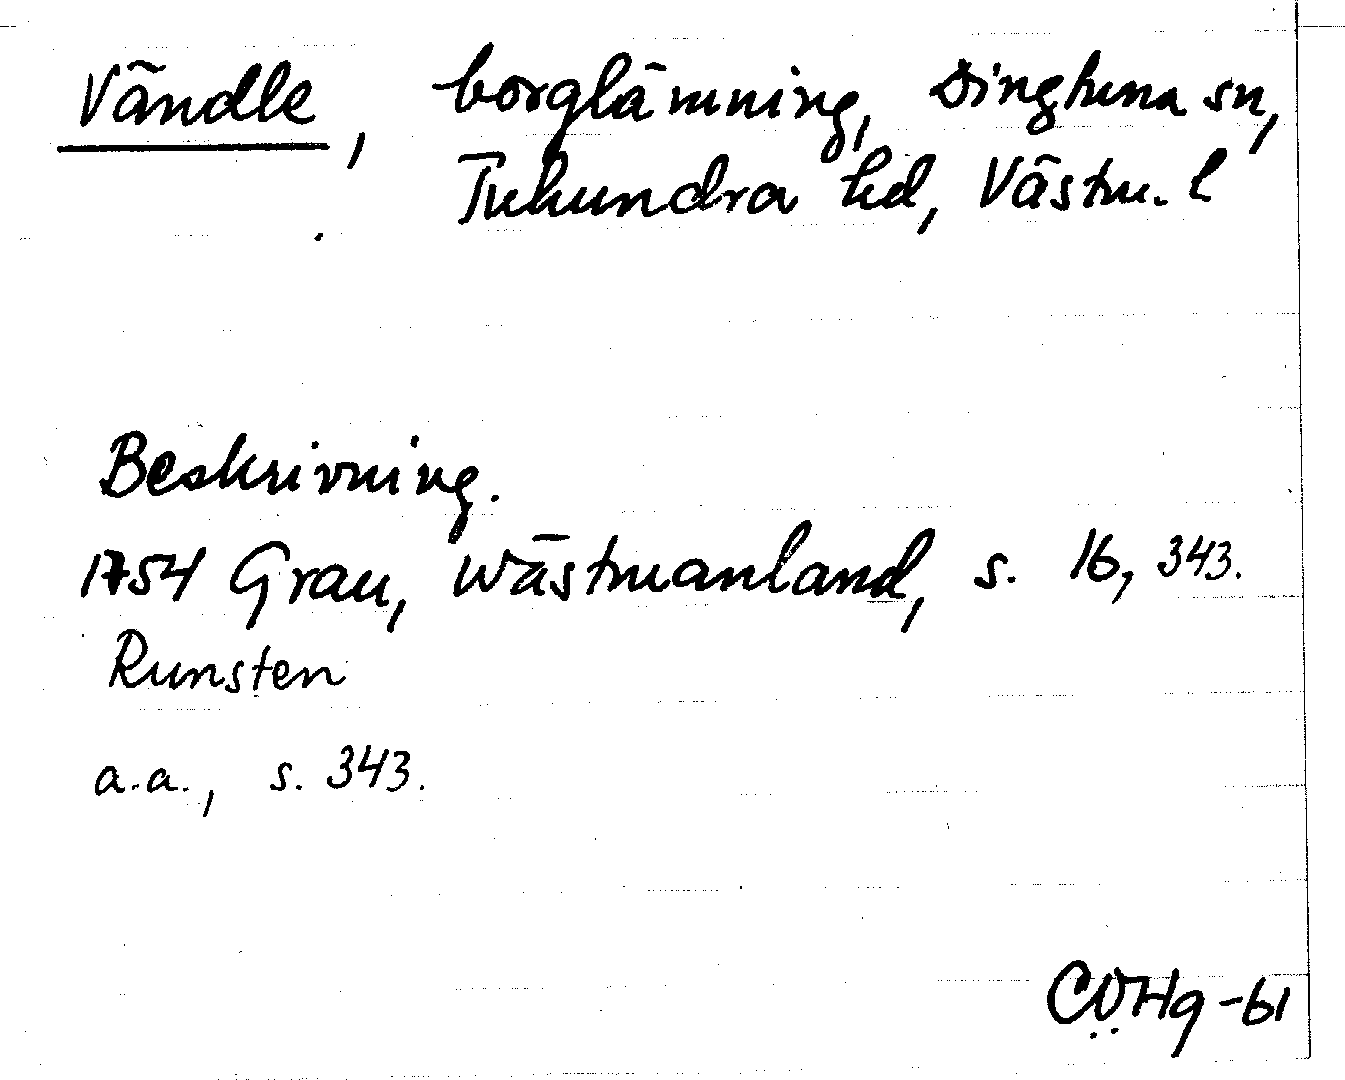 Vändle, borglämning, Dingtuna sn,
Tuhundra hd, Västm. l
Beskrivning.
1754 Grau, Wästmanland, s. 16, 343.
Runsten
a.a., s. 343.
CÖHg-61